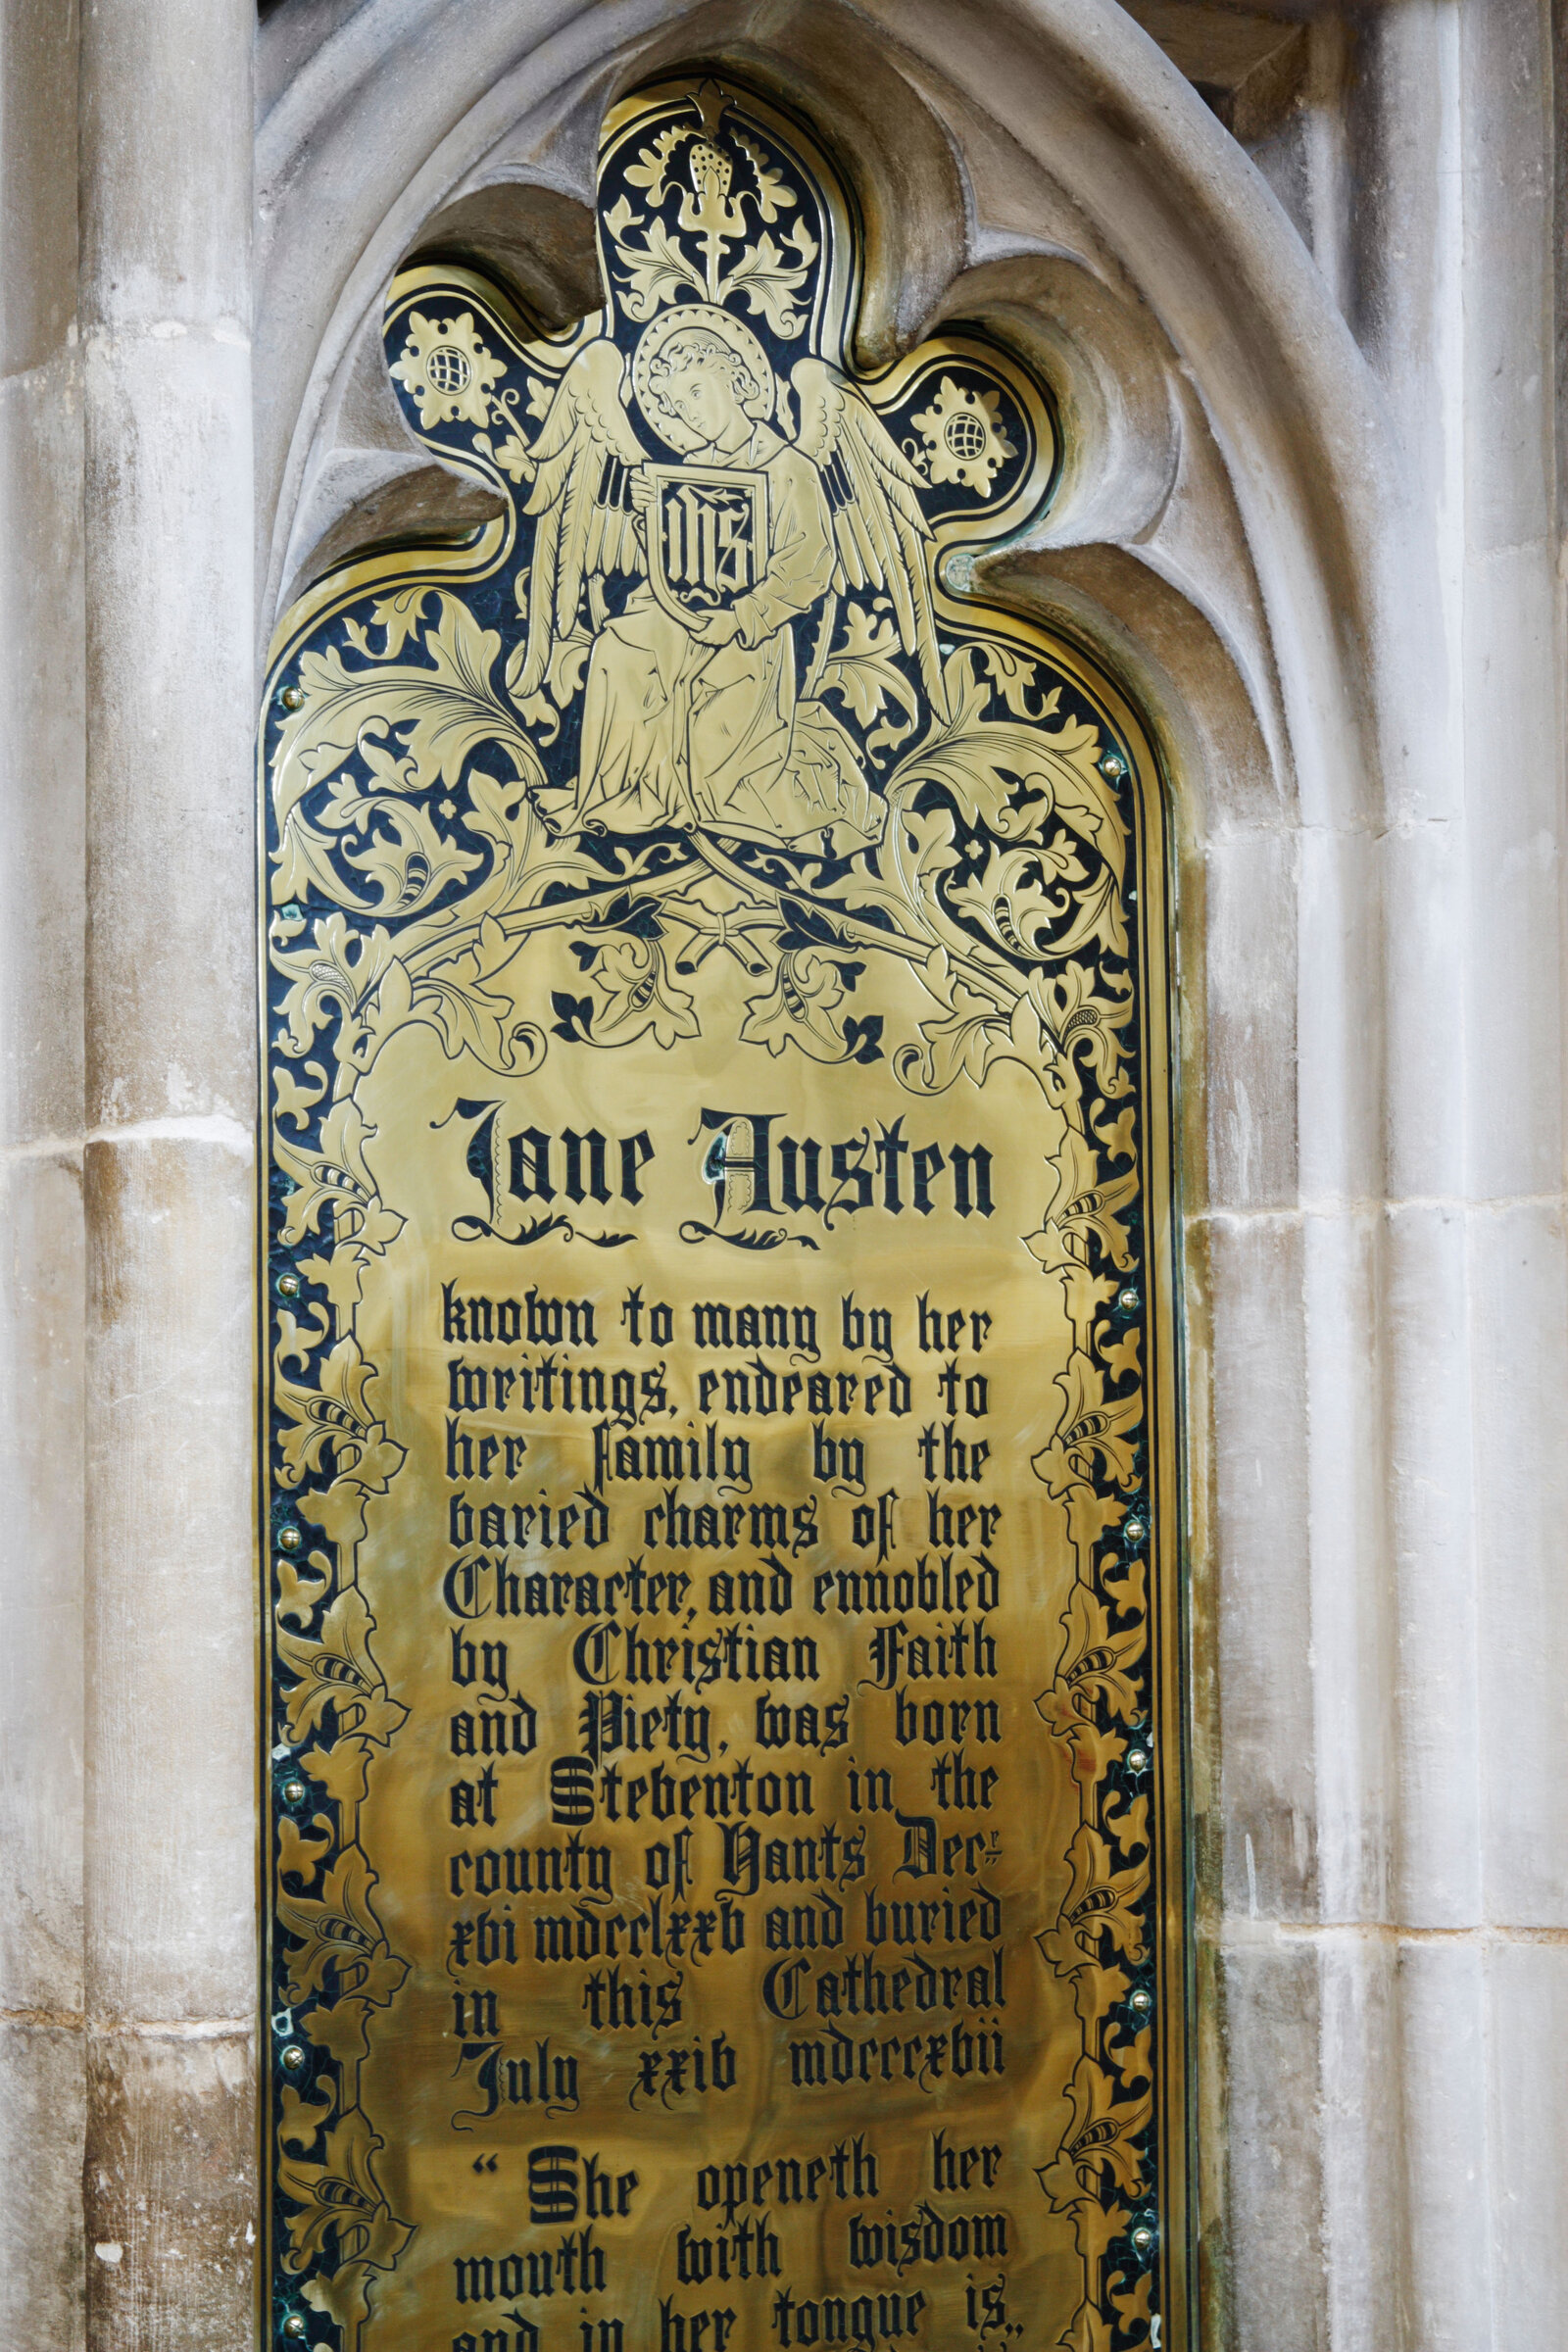 ihs
Jane Austen
known to many by her
writings, endeared to
her family by the
varied charms of her
Character, and ennobled
by Christian Faith
and Piety, was born
at Steventon in the
county of Hants Decr
xvi mdcclxxv and buried
in this Cathedral
July xxiv mdcccxvii
“She openeth her
mouth with wisdom
and in her tongue is